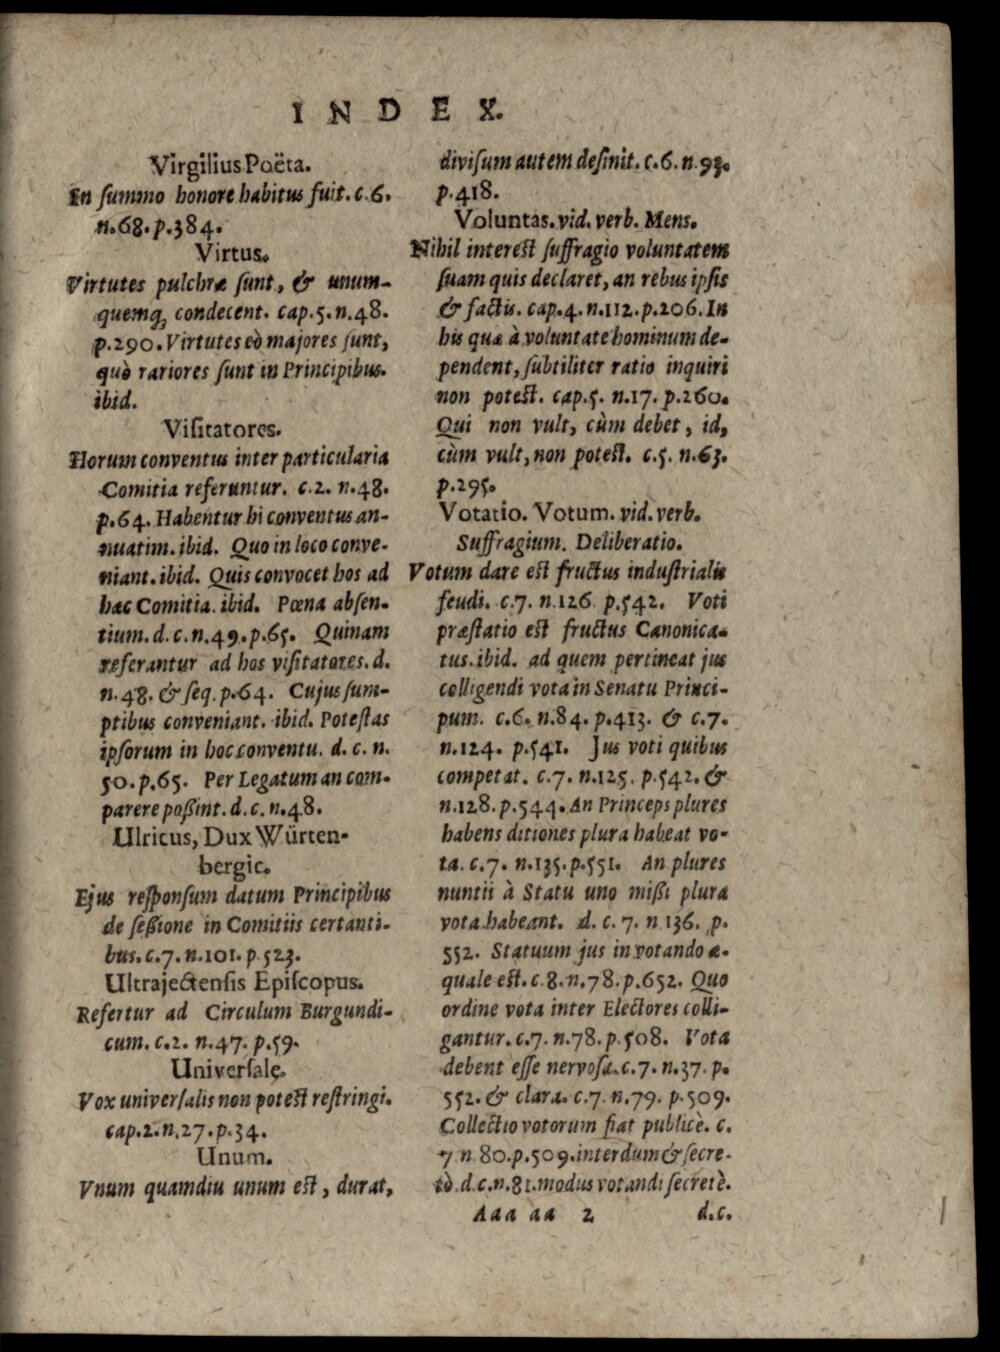 INDEX.
Virgilius Poëta.
In ſummo honore habitus fuit. c.6.
n.68.p.384.
Virtus.
Virtutes pulchræ ſunt, & unum-
quemq; condecent. cap.5.n.48.
p.290. Virtutes eò majores ſunt,
quò rariores ſunt in Principibus.
ibid.
Viſitatores.
Horum conventus inter particularia
Comitia referuntur. c.2. n.48.
p.64. Habentur hi conventus an-
nuatim. ibid. Quo in loco conve-
niant. ibid. Quis convocet hos ad
hæc Comitia. ibid. Pœna abſen-
tium. d.c.n.49.p.65. Quinam
referantur ad hos viſitatores. d.
n.48. & ſeq. p.64. Cujus ſum-
ptibus conveniant. ibid. Poteſtas
ipſorum in hoc conventu. d. c. n.
50.p.65. Per Legatum an com-
parere poßint. d.c.n.48.
Ulricus, Dux Würten-
bergic.
Ejus reſponſum datum Principibus
de ſeßione in Comitiis certanti-
bus. c.7. n.101. p.523.
Ultrajectenſis Epiſcopus.
Refertur ad Circulum Burgundi-
cum. c.2. n.47. p.59.
Univerſale.
Vox univerſalis non poteſt reſtringi.
cap.2.n.27.p.34.
Unum.
Vnum quamdiu unum eſt, durat,
diviſum autem deſinit. c.6. n.93.
p.418.
Voluntas. vid. verb. Mens.
Nihil intereſt ſuffragio voluntatem
ſuam quis declaret, an rebus ipſis
& factis. cap.4. n.112. p.206. In
his quæ à voluntate hominum de-
pendent, ſubtiliter ratio inquiri
non poteſt. cap.5. n.17. p.260.
Qui non vult, cùm debet, id,
cùm vult, non poteſt. c.5. n.63.
p.295.
Votatio. Votum. vid. verb.
Suffragium. Deliberatio.
Votum dare eſt fructus induſtrialis
feudi. c.7. n.126 p.542. Voti
præſtatio eſt fructus Canonica-
tus. ibid. ad quem pertineat jus
colligendi vota in Senatu Princi-
pum. c.6. n.84. p.413. & c.7.
n.124. p.541. Jus voti quibus
competat. c.7. n.125. p.542. &
n.128. p.544. An Princeps plures
habens ditiones plura habeat vo-
ta. c.7. n.135. p.551. An plures
nuntii à Statu uno mißi plura
vota habeant. d. c. 7. n 136. p.
552. Statuum jus in votando æ-
quale eſt. c.8. n.78. p.652. Quo
ordine vota inter Electores colli-
gantur. c.7. n.78. p.508. Vota
debent eſſe nervoſa. c.7. n.37. p.
552. & clara. c.7. n.79. p.509.
Collectio votorum fiat publicè. c.
7 n 80.p.509. interdum & ſecre-
tò. d.c.n.81. modus votandi ſecretè.
Aaa aa 2 d.c.